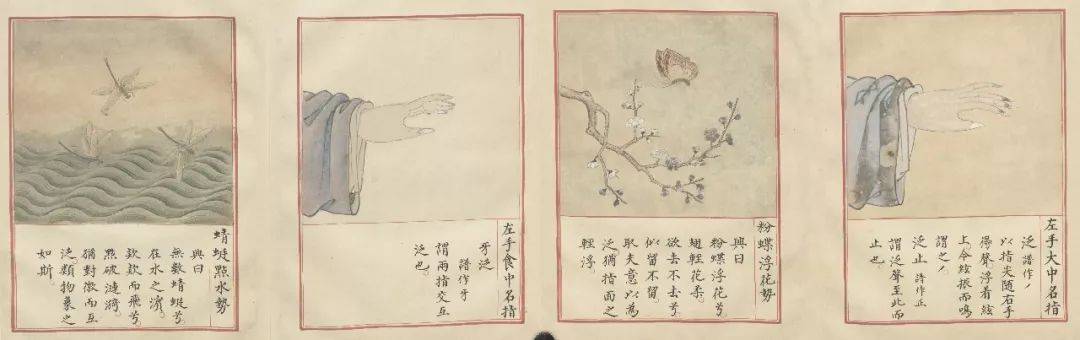 左手大中名指
泛 譜作丿
以指尖随右手
得聲浮着絃
上令絃振而鳴
謂之丿
泛止 譜作正
謂泛聲至此而
止也
粉蝶浮花勢
興曰
粉蝶浮花兮
翅輕花柔
欲去不去兮
似留不留
取夫意以為
泛猶指面之
輕浮
左手食中名指
牙泛
譜作牙
謂兩指交互
泛也
蜻蜓點水勢
興曰
無數蜻蜓兮
在水之濱
欵欵而飛兮
點破漣漪
猶對徽而互
泛類物象之
如斯